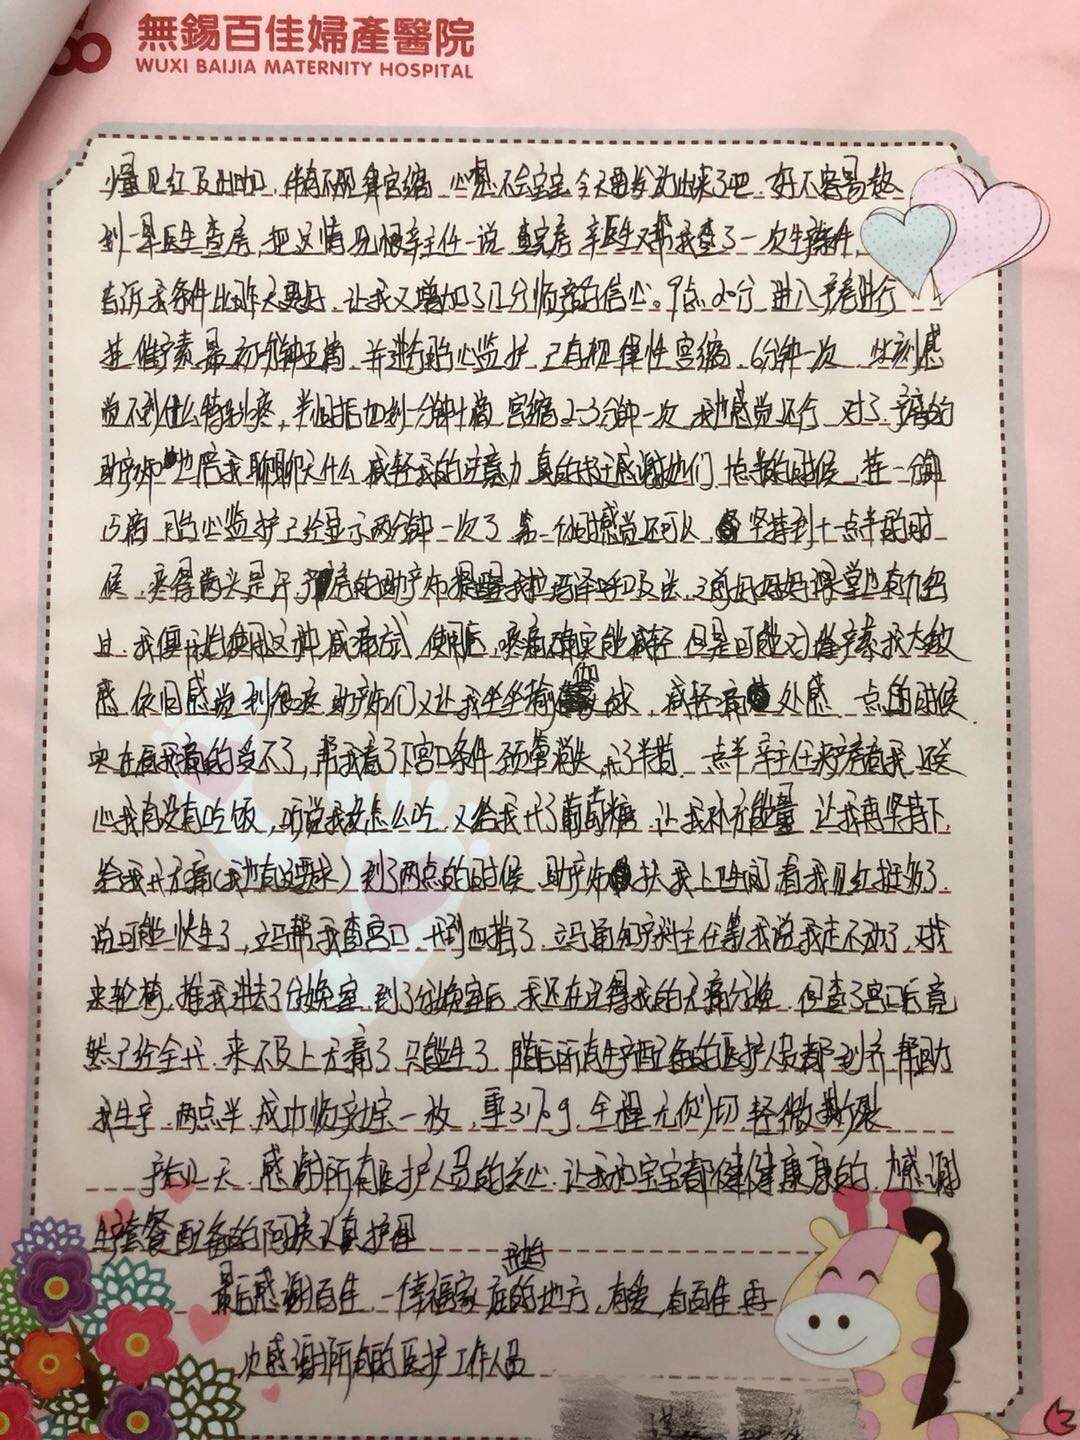 無錫百佳婦產醫院
WUXI BAIJIA MATERNITY HOSPITAL
量见红及出血，伴有不规律宫缩，心想不会宝宝今天要发动出来了吧，好不容易熬
到早医生查房，把这情况跟辛主任一说，查完房辛医生又帮我查了一次生产条件，
告诉我条件比昨天要好，让我又增加了几分顺产的信心。9点20分，进入产房进行
挂催产素最初分钟五滴，并进行胎心监护，已有规律性宫缩，6分钟一次，此刻感
觉不到什么特别疼，半小时后加到一分钟十滴，宫缩2-3分钟一次，我也感觉还行，对了，产房的
助产师也陪我聊聊天什么，减轻我的注意力，真的我还感谢她们，点半的时候，在一分钟
15滴，胎心监护已经显示两分钟一次了，第一个小时感觉还可以，坚持到十一点半的时
候，疼得满头是汗，产房的助产师提醒我拉玛泽呼吸法，之前好妈妈课堂也有介绍
过，我便开始使用这种减痛方式，使用后，疼痛确实能减轻，但是可能对催产素我太敏
感，依旧感觉到很疼，助产师们又让我坐坐瑜伽球，减轻痛处感，一点的时候
实在痛的受不了，帮我看了下宫口条件，颈管消失，开了半指，一点半辛主任来产房看我，还关
心我有没有吃饭，听说我没怎么吃，又给我开了葡萄糖，让我补充能量，让我再坚持下，
给我开无痛(我也有这要求)到了两点的时候，助产师扶我上卫生间，看我见红挺多了，
说可能快生了，立马帮我查宫口，开到四指了，立马通知产科主任等，我说我走不动了，找
来轮椅，推我进去了分娩室，到了分娩室后，我还在记得我的无痛分娩，但查了宫口后竟
然已经全开，来不及上无痛了，只能生了，随后所有生产配备的医护人员都到齐帮助
我生产，两点半，成功顺产宝一枚，重3170g，全程无侧切，轻微撕裂
产后几天，感谢所有医护人员的关心，让我和宝宝都健健康康的，感谢
生产套餐配备的阿姨认真护理
最后感谢百佳，一幸福家庭的地方，有爱，有百佳，再
次感谢所有的医护工作人员